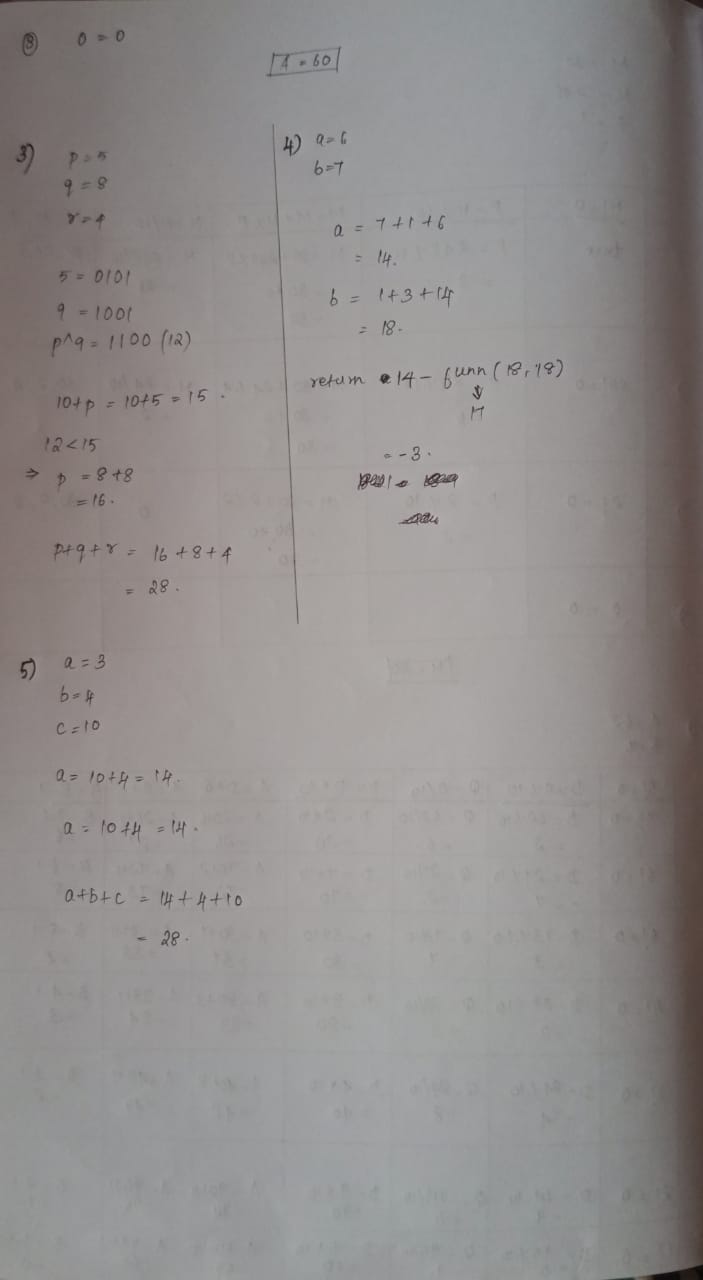 (8) 0 = 0
A = 60
3) p = 5
q = 8
r = 4
5 = 0101
9 = 1001
p^q = 1100 (12)
10+p = 10+5 = 15.
12<15
⇒ p = 8+8
= 16.
p+q+r = 16+8+4
= 28.
4) a=6
b=7
a = 7+1+6
= 14.
b = 1+3+14
= 18.
return 14 - funn(18,18)
↓
17
= -3.
5) a = 3
b = 4
c = 10
a = 10+4 = 14.
a = 10+4 = 14.
a+b+c = 14+4+10
= 28.